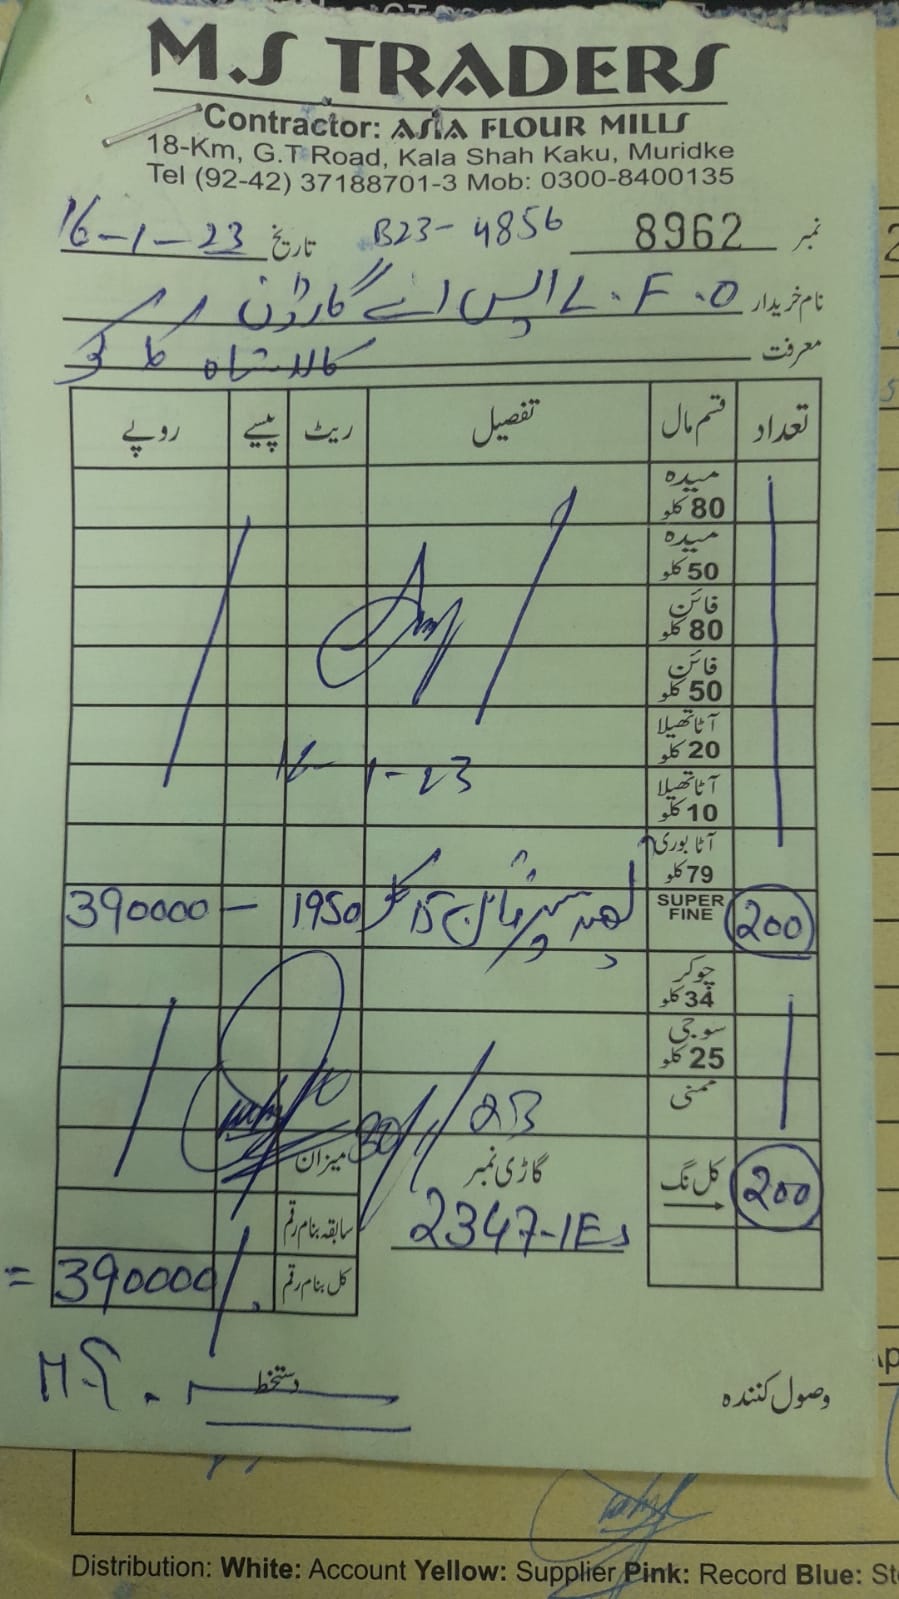 M.S TRADERS
Contractor: ASIA FLOUR MILLS
18-Km, G.T Road, Kala Shah Kaku, Muridke
Tel (92-42) 37188701-3 Mob: 0300-8400135
نمبر 8962 B23-4856 تاریخ 16-1-23
نام خریدار L.F.O ایس اے گارڈن
معرفت کالا شاہ کاکو
تعداد قسم مال تفصیل ریٹ پیسے روپے
میدہ 80 کلو
میدہ 50 کلو
فائن 80 کلو
فائن 50 کلو
آٹا تھیلا 20 کلو
16-1-23
آٹا تھیلا 10 کلو
آٹا بوری 79 کلو
200 SUPER FINE سپر فائن 15 کلو 1950 — 390000
چوکر 34 کلو
سوجی 25 کلو
ممنی
23
200 کل نگ گاڑی نمبر میزان
2347-IES سابقہ بنام رقم
کل بنام رقم 390000 =
وصول کنندہ دستخط
Distribution: White: Account Yellow: Supplier Pink: Record Blue: St